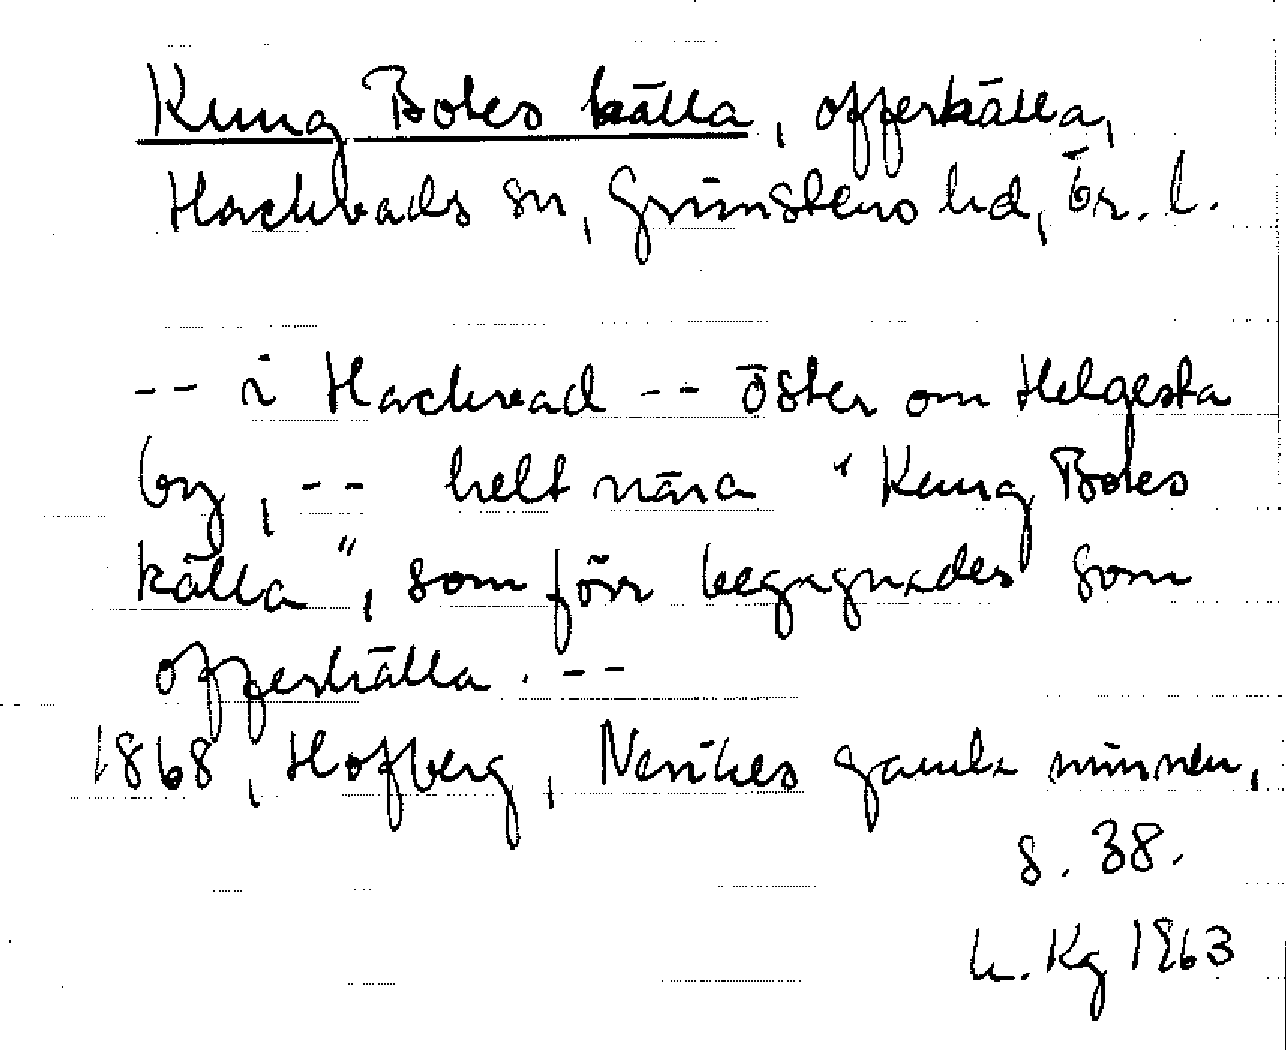 Kung Botes källa, offerkälla,
Hackvads sn, Grimstens hd, Ör. l.
-- i Hackvad -- öster om Helgesta
by, -- helt nära "Kung Botes
källa", som förr begagnades som
offerkälla. --
1868, Hofberg, Nerikes gamla minnen,
s. 38.
Kg 1963